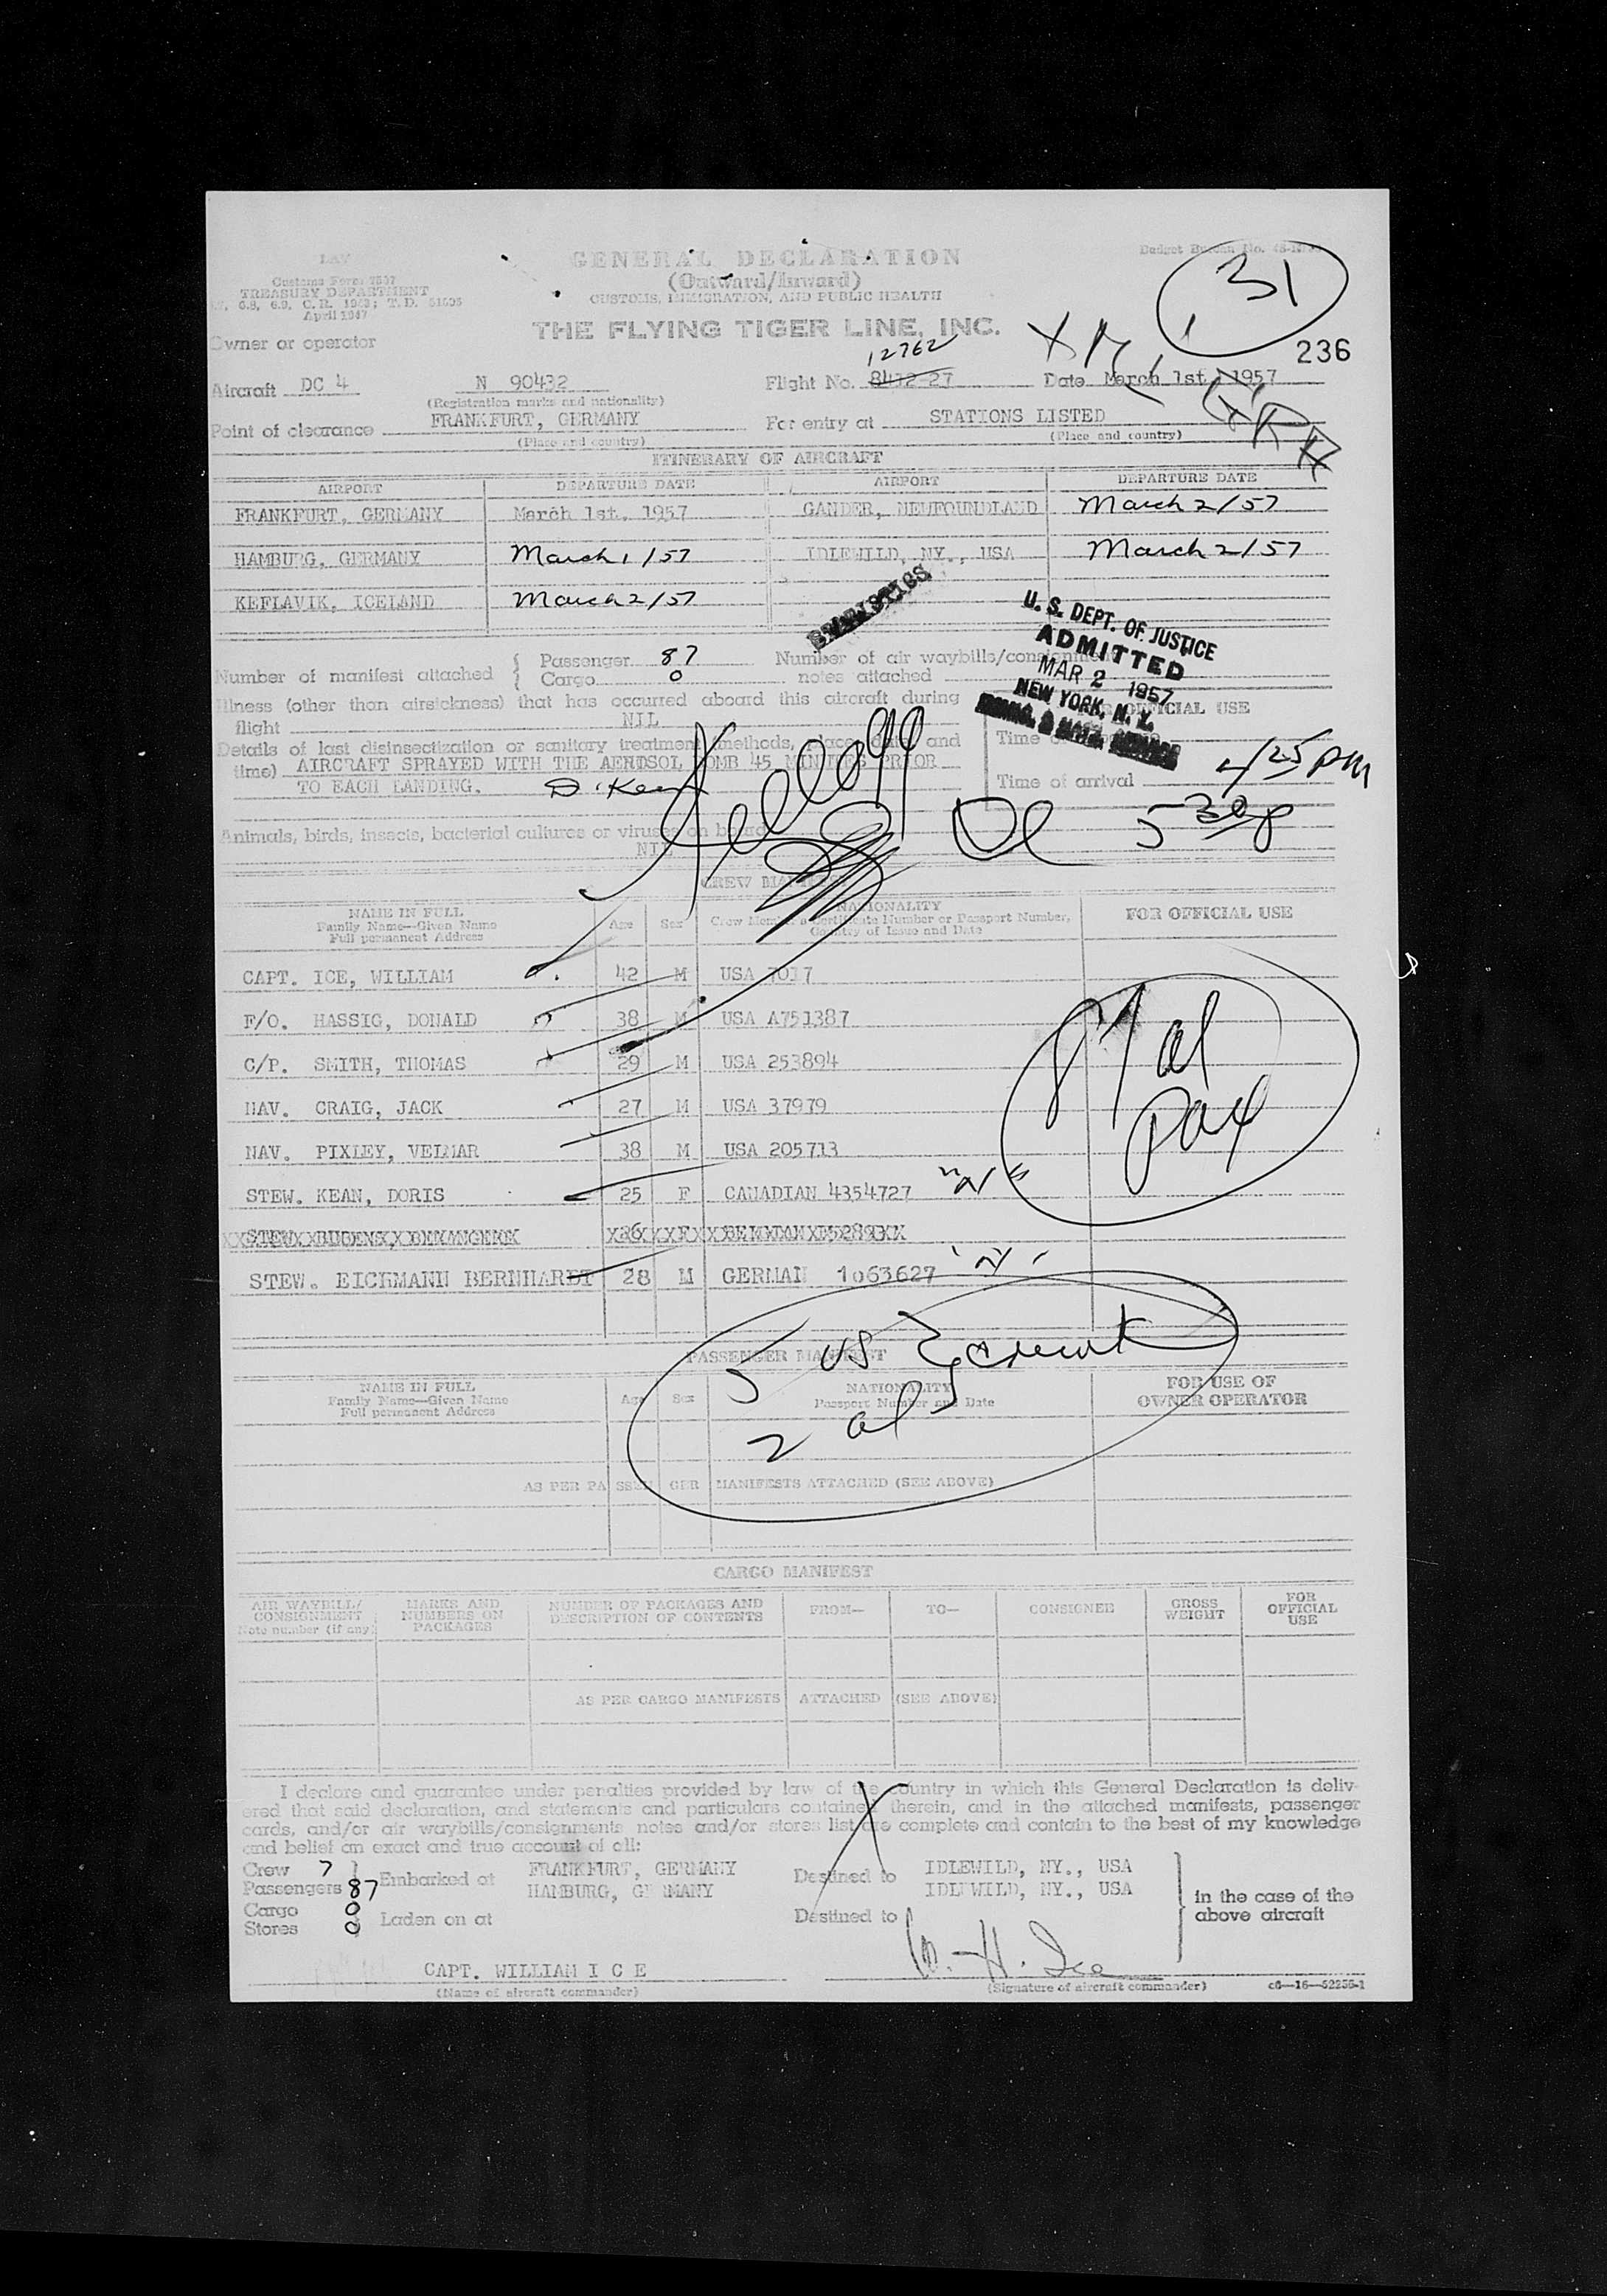 GENERAL DECLARATION
(Outward/Inward)
CUSTOMS, IMMIGRATION, AND PUBLIC HEALTH
Customs Form 7507
TREASURY DEPARTMENT
April 1947
31
THE FLYING TIGER LINE, INC.
236
Owner or operator
12762
Aircraft DC 4 N 90432 Flight No. 8432-27 Date March 1st, 1957
(Registration marks and nationality)
Point of clearance FRANKFURT, GERMANY For entry at STATIONS LISTED
(Place and country) (Place and country)
ITINERARY OF AIRCRAFT
AIRPORT DEPARTURE DATE AIRPORT DEPARTURE DATE
FRANKFURT, GERMANY March 1st, 1957 GANDER, NEWFOUNDLAND March 2/57
HAMBURG, GERMANY March 1/57 IDLEWILD, NY., USA March 2/57
KEFLAVIK, ICELAND March 2/57
U. S. DEPT. OF JUSTICE
ADMITTED
MAR 2 1957
NEW YORK, N. Y.
Number of manifest attached { Passenger 87 Number of air waybills/consignment
Cargo 0 notes attached
Illness (other than airsickness) that has occurred aboard this aircraft during
flight NIL
FOR OFFICIAL USE
Details of last disinsectization or sanitary treatment (methods, place, date and
time) AIRCRAFT SPRAYED WITH THE AEROSOL BOMB 45 MINUTES PRIOR
TO EACH LANDING. D. Kean
Time of arrival 4 25 PM
5 30 p
Animals, birds, insects, bacterial cultures or viruses on board
NIL
CREW MANIFEST
NAME IN FULL
Family Name—Given Name
Full permanent Address
Age Sex
NATIONALITY
Crew Member's Certificate Number or Passport Number,
Country of Issue and Date
FOR OFFICIAL USE
CAPT. ICE, WILLIAM 42 M USA 7017
F/O. HASSIG, DONALD 38 M USA A751387
C/P. SMITH, THOMAS 29 M USA 253894
NAV. CRAIG, JACK 27 M USA 37979
NAV. PIXLEY, VELMAR 38 M USA 205713
STEW. KEAN, DORIS 25 F CANADIAN 4354727
STEW. EICHMANN BERNHARDT 28 M GERMAN 1063627
87 al
Pax
5 US } crew
2 al
PASSENGER MANIFEST
NAME IN FULL
Family Name—Given Name
Full permanent Address
Age Sex
NATIONALITY
Passport Number and Date
FOR USE OF
OWNER OPERATOR
AS PER PASSENGER MANIFESTS ATTACHED (SEE ABOVE)
CARGO MANIFEST
AIR WAYBILL/
CONSIGNMENT
Note number (if any)
MARKS AND
NUMBERS ON
PACKAGES
NUMBER OF PACKAGES AND
DESCRIPTION OF CONTENTS
FROM—
TO—
CONSIGNEE
GROSS
WEIGHT
FOR
OFFICIAL
USE
AS PER CARGO MANIFESTS ATTACHED (SEE ABOVE)
I declare and guarantee under penalties provided by law of the country in which this General Declaration is deliv-
ered that said declaration, and statements and particulars contained therein, and in the attached manifests, passenger
cards, and/or air waybills/consignments notes and/or stores list are complete and contain to the best of my knowledge
and belief an exact and true account of all:
Crew 7 Embarked at FRANKFURT, GERMANY Destined to IDLEWILD, NY., USA
Passengers 87 HAMBURG, GERMANY IDLEWILD, NY., USA
in the case of the
above aircraft
Cargo 0
Stores 0 Laden on at Destined to
CAPT. WILLIAM I C E W. H. Ice
(Name of aircraft commander) (Signature of aircraft commander) c6—16—52256-1